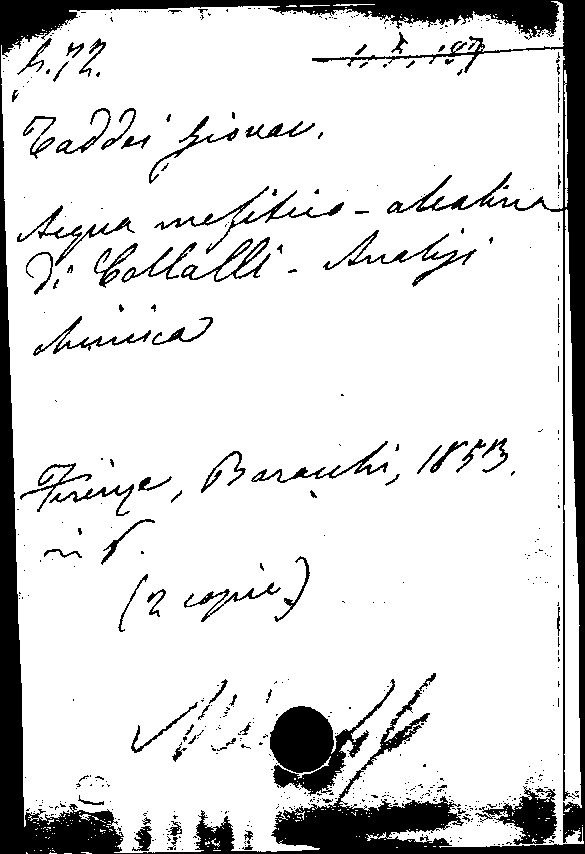 G.72. 1.5.187
Taddei Giovac.
Acqua mefitico-alcalina
di Collalli - Analisi
chimica
Firenze, Baracchi, 1853.
in 8.
(2 copie)